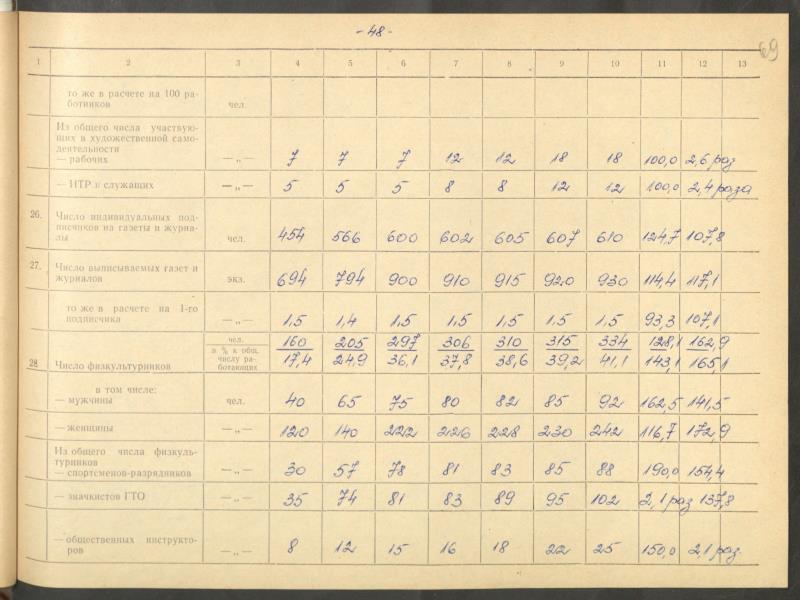 - 48 -
69
1 2 3 4 5 6 7 8 9 10 11 12 13
то же в расчете на 100 ра-
ботников чел.
Из общего числа участвую-
щих в художественной само-
деятельности
— рабочих —„— 7 7 7 12 12 18 18 100,0 2,6 раз
— ИТР и служащих —„— 5 5 5 8 8 12 12 100,0 2,4 раза
26. Число индивидуальных под-
писчиков на газеты и журна-
лы чел. 454 566 600 602 605 607 610 124,7 107,8
27. Число выписываемых газет и
журналов экз. 694 794 900 910 915 920 930 114,4 117,1
то же в расчете на 1-го
подписчика —„— 1,5 1,4 1,5 1,5 1,5 1,5 1,5 93,3 107,1
чел. 160 205 297 306 310 315 334 128,1 162,9
28 Число физкультурников в % к общ. числу ра- ботающих 17,4 24,9 36,1 37,8 38,6 39,2 41,1 143,1 165,1
в том числе:
— мужчины чел. 40 65 75 80 82 85 92 162,5 141,5
— женщины —„— 120 140 222 226 228 230 242 116,7 172,9
Из общего числа физкуль-
турников
— спортсменов-разрядников —„— 30 57 78 81 83 85 88 190,0 154,4
— значкистов ГТО —„— 35 74 81 83 89 95 102 2,1 раз 137,8
— общественных инструкто-
ров —„— 8 12 15 16 18 22 25 150,0 2,1 раз